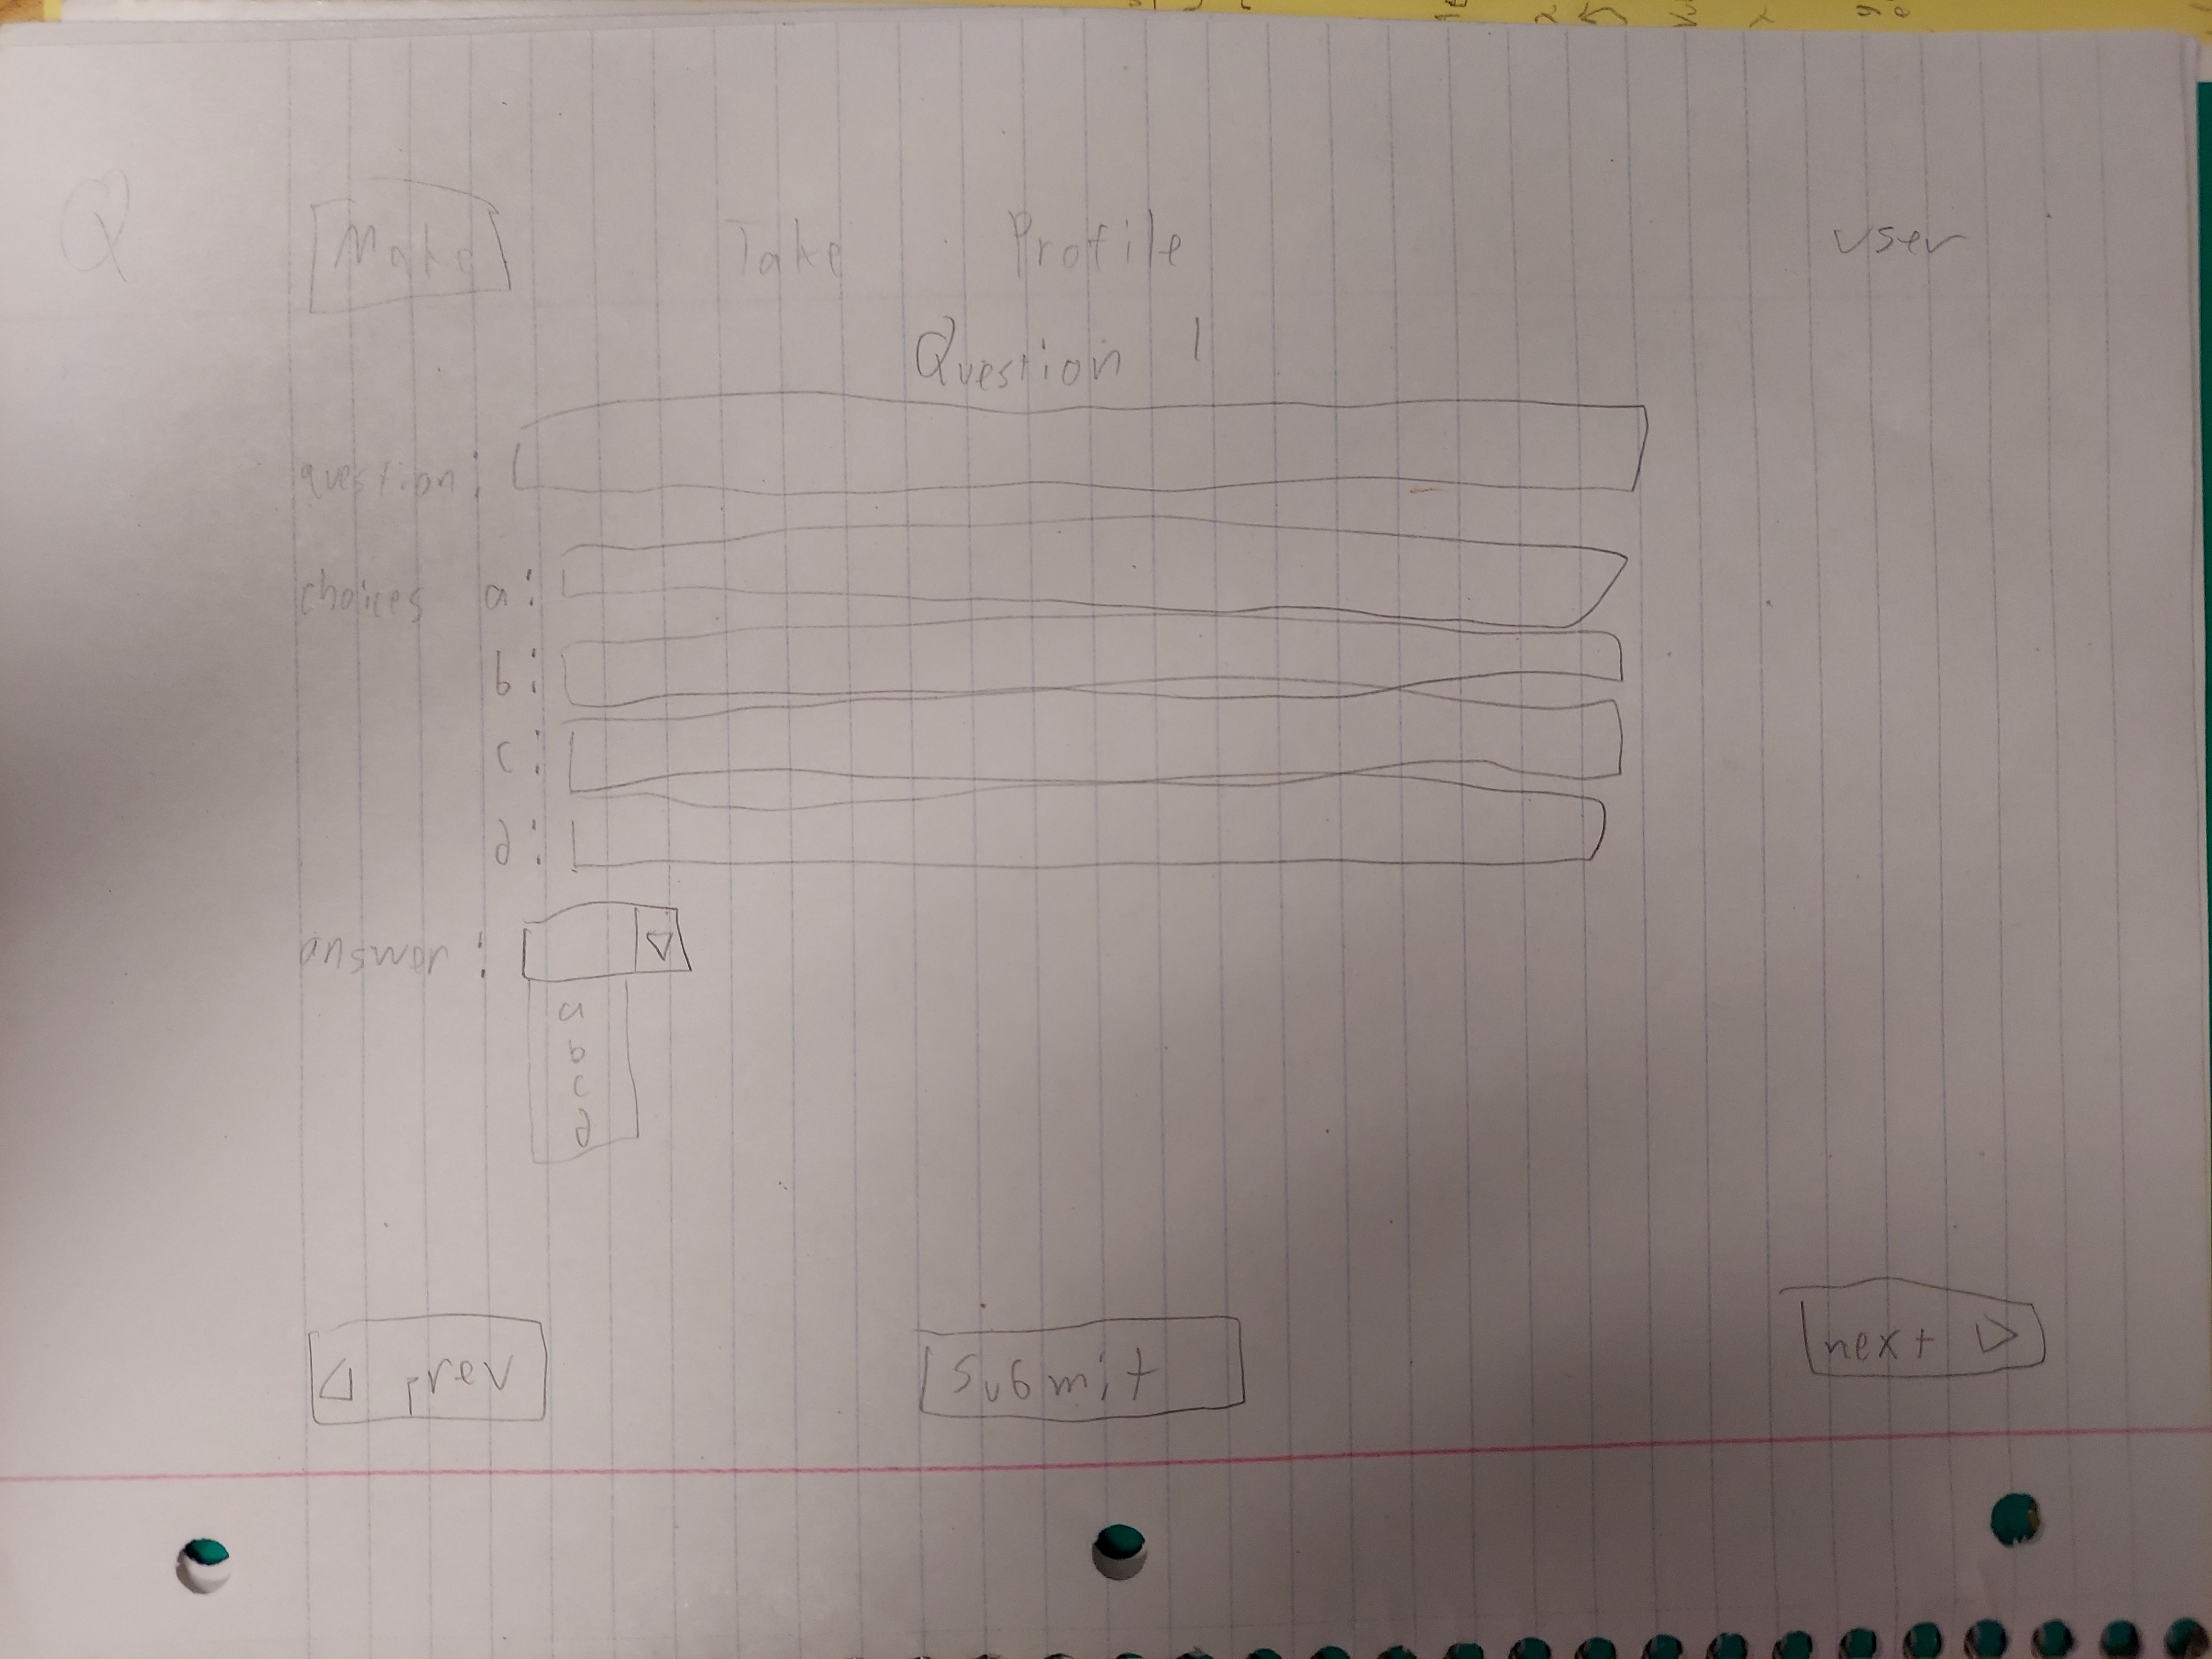 Q
Make Take Profile user
Question 1
question :
choices a :
b :
c :
d :
answer :
a
b
c
d
prev Submit next